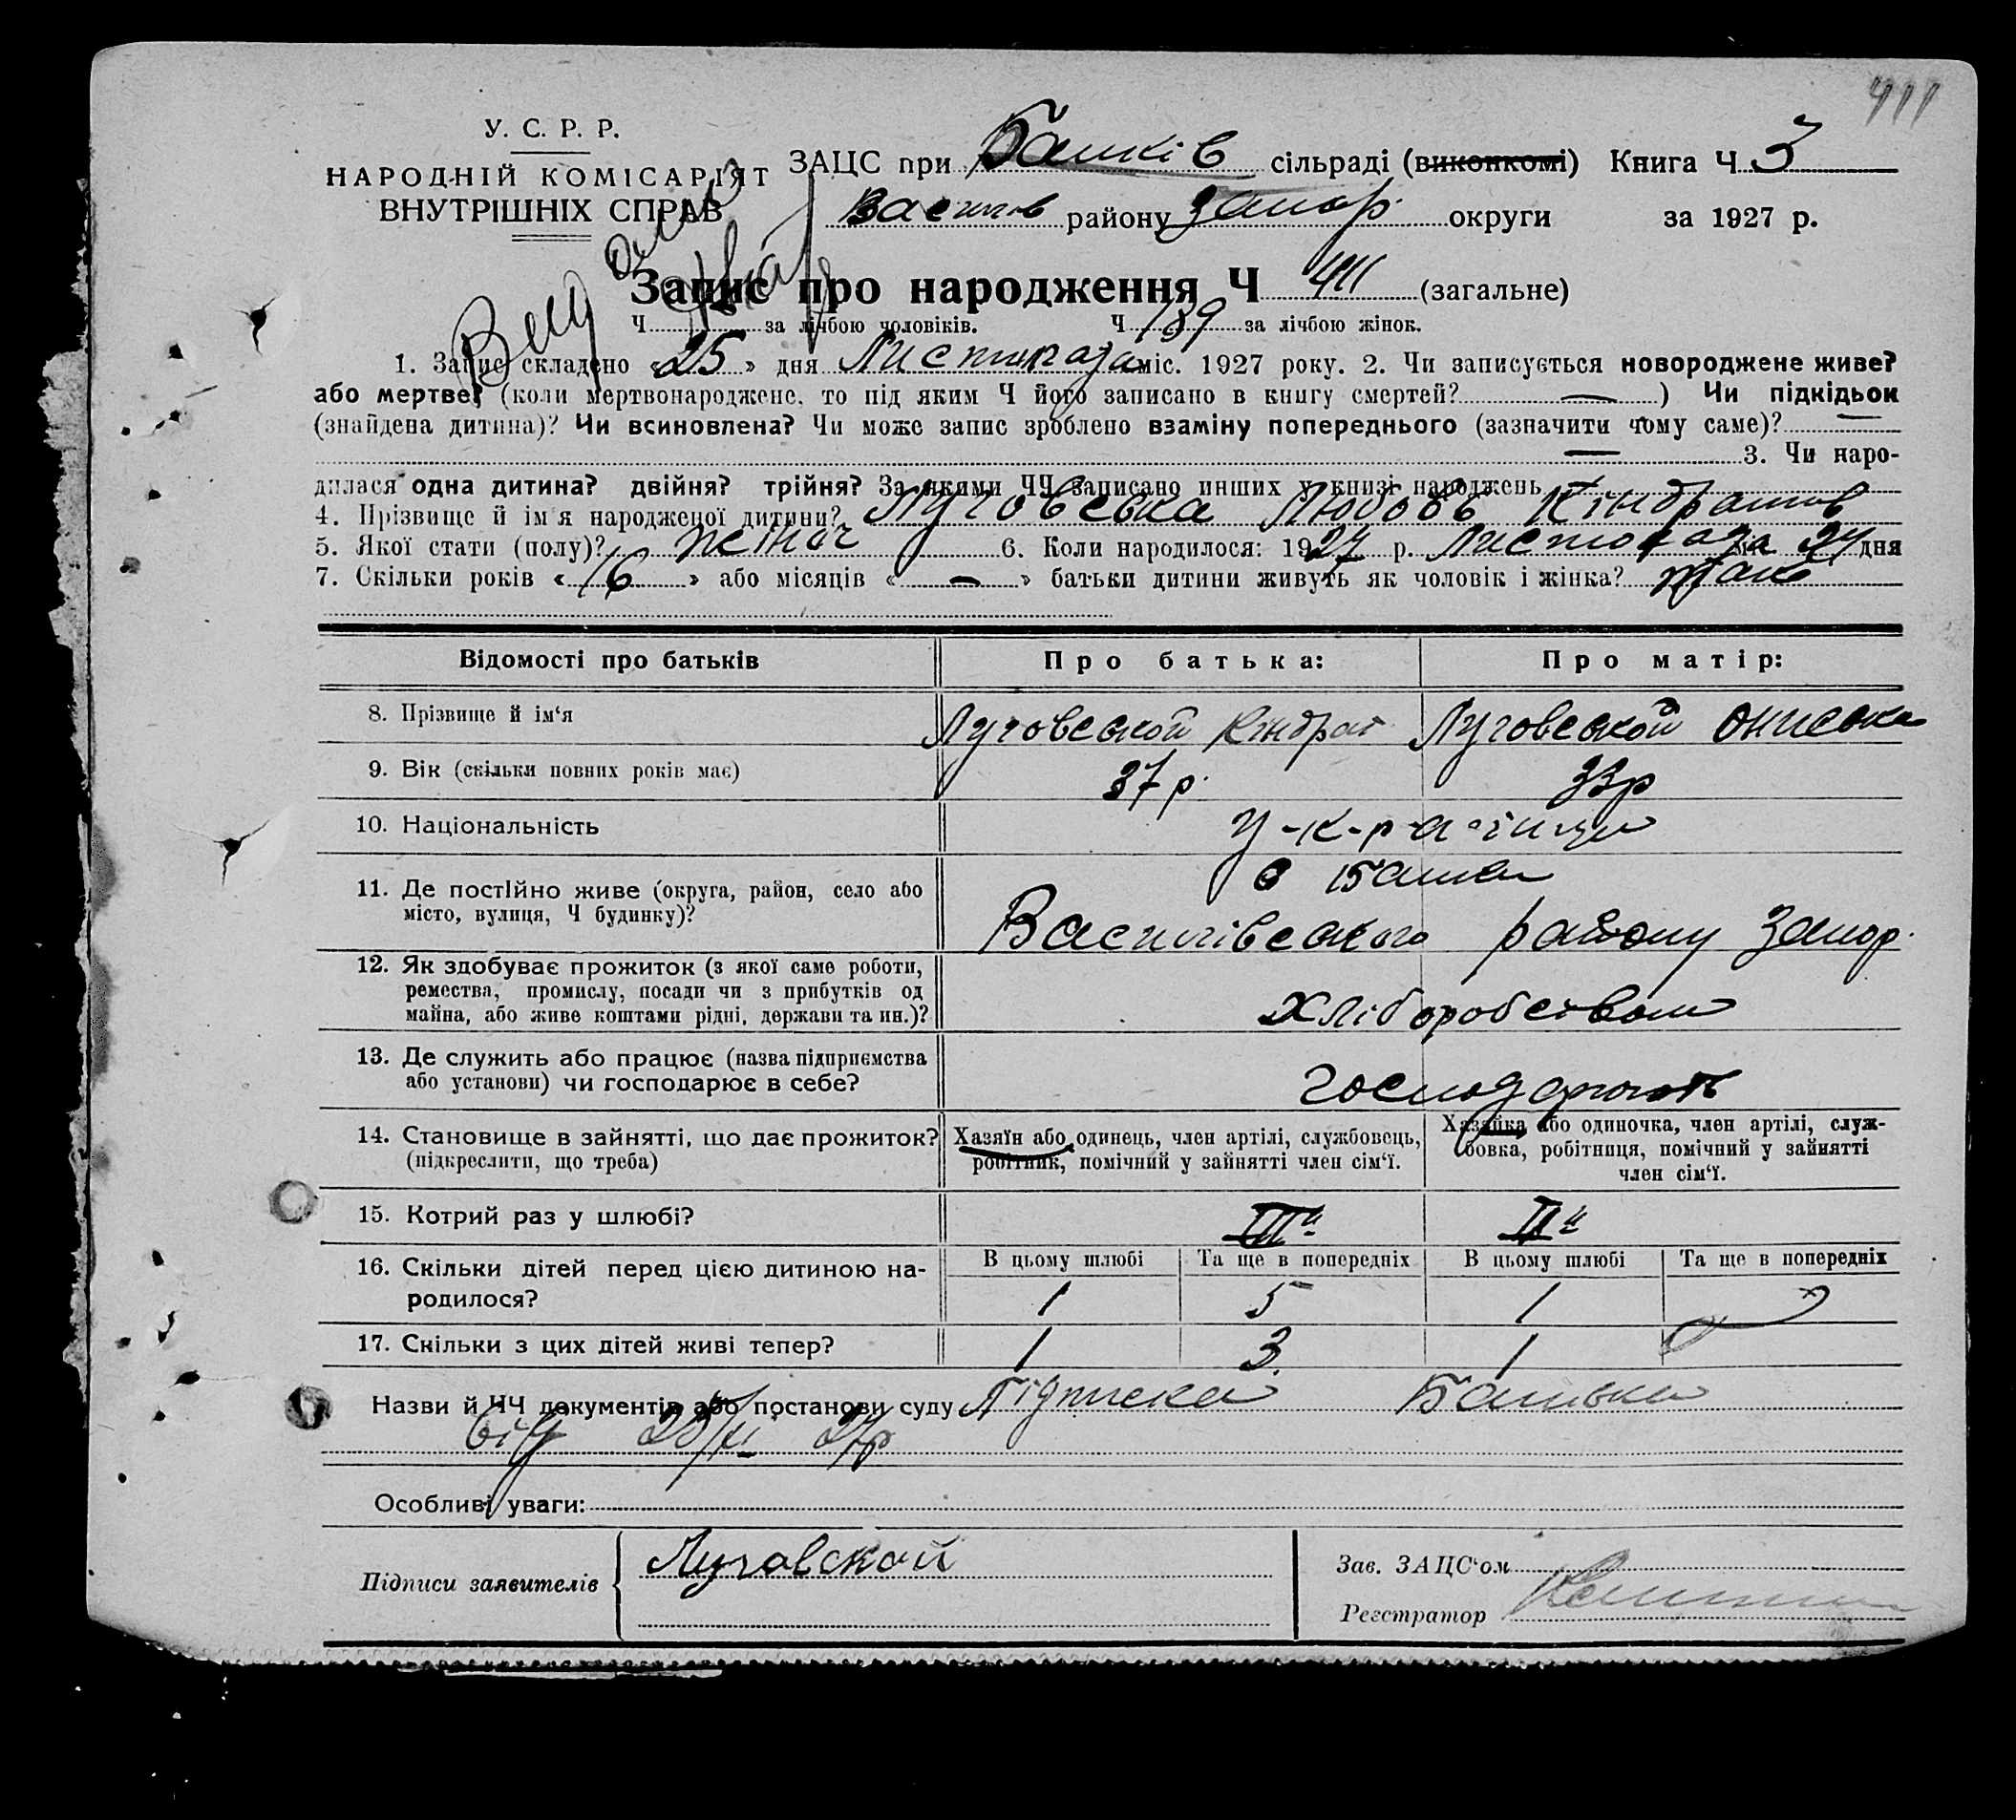 411
У. С. Р. Р.
НАРОДНІЙ КОМІСАРІЯТ
ВНУТРІШНІХ СПРАВ
ЗАЦС при Балків сільраді (виконкомі) Книга Ч 3
Васил́ів району Запор. округи за 1927 р.
Запис про народження Ч 411 (загальне)
Ч за лічбою чоловіків. Ч 189 за лічбою жінок.
1. Запис складено «25» дня Листопада міс. 1927 року. 2. Чи записується новороджене живе?
або мертве? (коли мертвонароджене, то під яким Ч його записано в книгу смертей? — ) Чи підкідьок
(знайдена дитина)? Чи всиновлена? Чи може запис зроблено взаміну попереднього (зазначити чому саме)? —
— 3. Чи наро-
дилася одна дитина? двійня? трійня? За якими ЧЧ записано инших у книзі народжень
4. Прізвище й ім'я народженої дитини? Луговська Любовь Кіндратов
5. Якої стати (полу)? жіноч 6. Коли народилося: 1927 р. Листопада 24 дня
7. Скільки років «16» або місяців « — » батьки дитини живуть як чоловік і жінка? так
Відомості про батьків Про батька: Про матір:
8. Прізвище й ім'я Луговськой Кіндрат Луговськой Ониська
9. Вік (скільки повних років має) 37 р. 33 р
10. Національність У-к-р-а-їнци
11. Де постійно живе (округа, район, село або
місто, вулиця, Ч будинку)?
с Балка
Василівського району Запор.
12. Як здобуває прожиток (з якої саме роботи,
ремества, промислу, посади чи з прибутків од
майна, або живе коштами рідні, держави та ин.)?
Хліборобством
13. Де служить або працює (назва підприємства
або установи) чи господарює в себе?
Господарюють
14. Становище в зайнятті, що дає прожиток?
(підкреслити, що треба)
Хазяїн або одинець, член артілі, службовець,
робітник, помічний у зайнятті член сім'ї.
Хазяйка або одиночка, член артілі, служ-
бовка, робітниця, помічний у зайнятті
член сім'ї.
15. Котрий раз у шлюбі? III й II й
16. Скільки дітей перед цією дитиною на-
родилося?
В цьому шлюбі Та ще в попередніх В цьому шлюбі Та ще в попередніх
1 5 1
17. Скільки з цих дітей живі тепер? 1 3 1
Назви й ЧЧ документів або постанови суду Підписка Батька
від 25/XI 27р
Особливі уваги:
Підписи заявителів Луговской
Зав. ЗАЦС'ом
Реєстратор